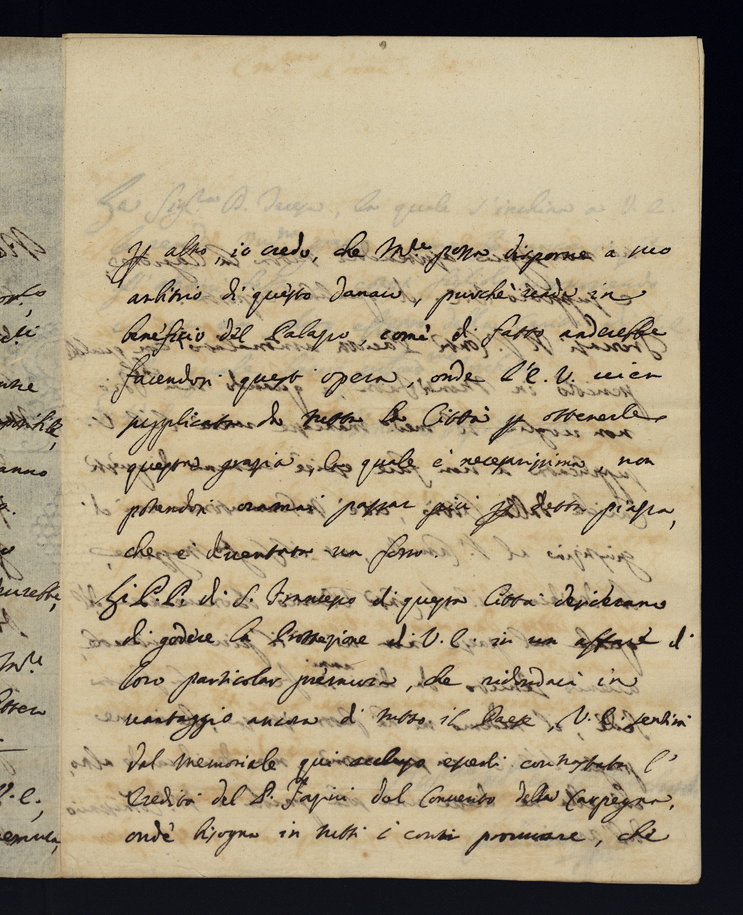 altro, io credo, che M.te possa disporre a suo
arbitrio di questo danaro, purchè vada in
beneficio del Palazzo come di fatto anderebbe
facendosi quest' opera, onde l' E. V. vien
supplicata da tutta la Città p ottenerle
questa grazia, la quale è necessarissima non
potendosi oramai passar più p detta piazza,
che è diventata un fosso.
Li P.P. di S. Francesco di questa Città desiderano
di godere la Protezione di V. E. in un affare di
loro particolar premura, che ridondaci in
vantaggio ancora di tutto il Paese. V. E. sentirà
dal memoriale qui accluso esserli contrastata l'
Eredità del P. Fagini dal Convento della Carpegna,
onde bisogna in tutti i conti procurare, che